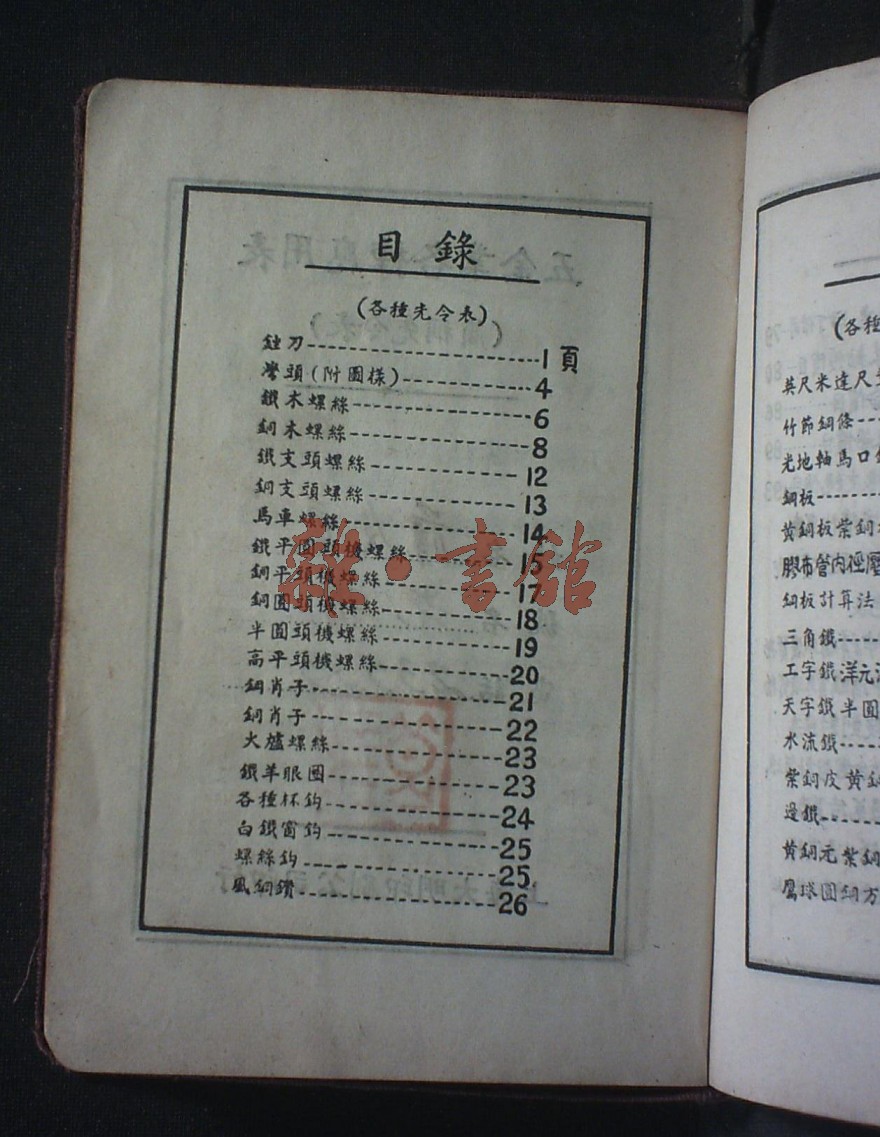 目錄
(各種先令表)
銼刀 1 頁
灣頭(附圖樣) 4
鐵木螺絲 6
銅木螺絲 8
鐵支頭螺絲 12
銅支頭螺絲 13
馬車螺絲 14
鐵平圓頭機螺絲 15
銅平頭機螺絲 17
銅圓頭機螺絲 18
半圓頭機螺絲 19
高平頭機螺絲 20
鋼肖子 21
銅肖子 22
火爐螺絲 23
鐵羊眼圈 23
各種杯鈎 24
白鐵窗鈎 25
螺絲鈎 25
風鋼鑽 26
雜·書館
(各種
英尺米達尺
竹節鋼條
光地軸馬口
鋼板
黄銅板紫銅
膠布管内徑
鋼板計算法
三角鐵
工字鐵洋元
天字鐵半圓
水流鐵
紫銅皮黄銅
邊鐵
黄銅元紫銅
鷹球圓鋼方